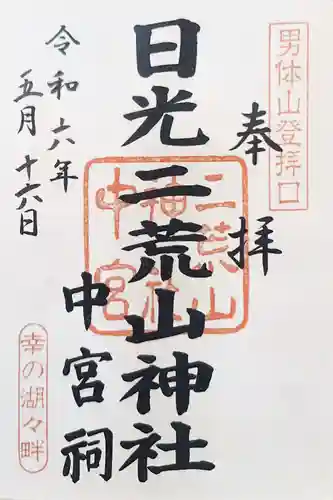 男体山登拝口
奉拝
日光二荒山神社
中宮祠
二荒山
神社
中宮
令和六年
五月十六日
幸の湖々畔